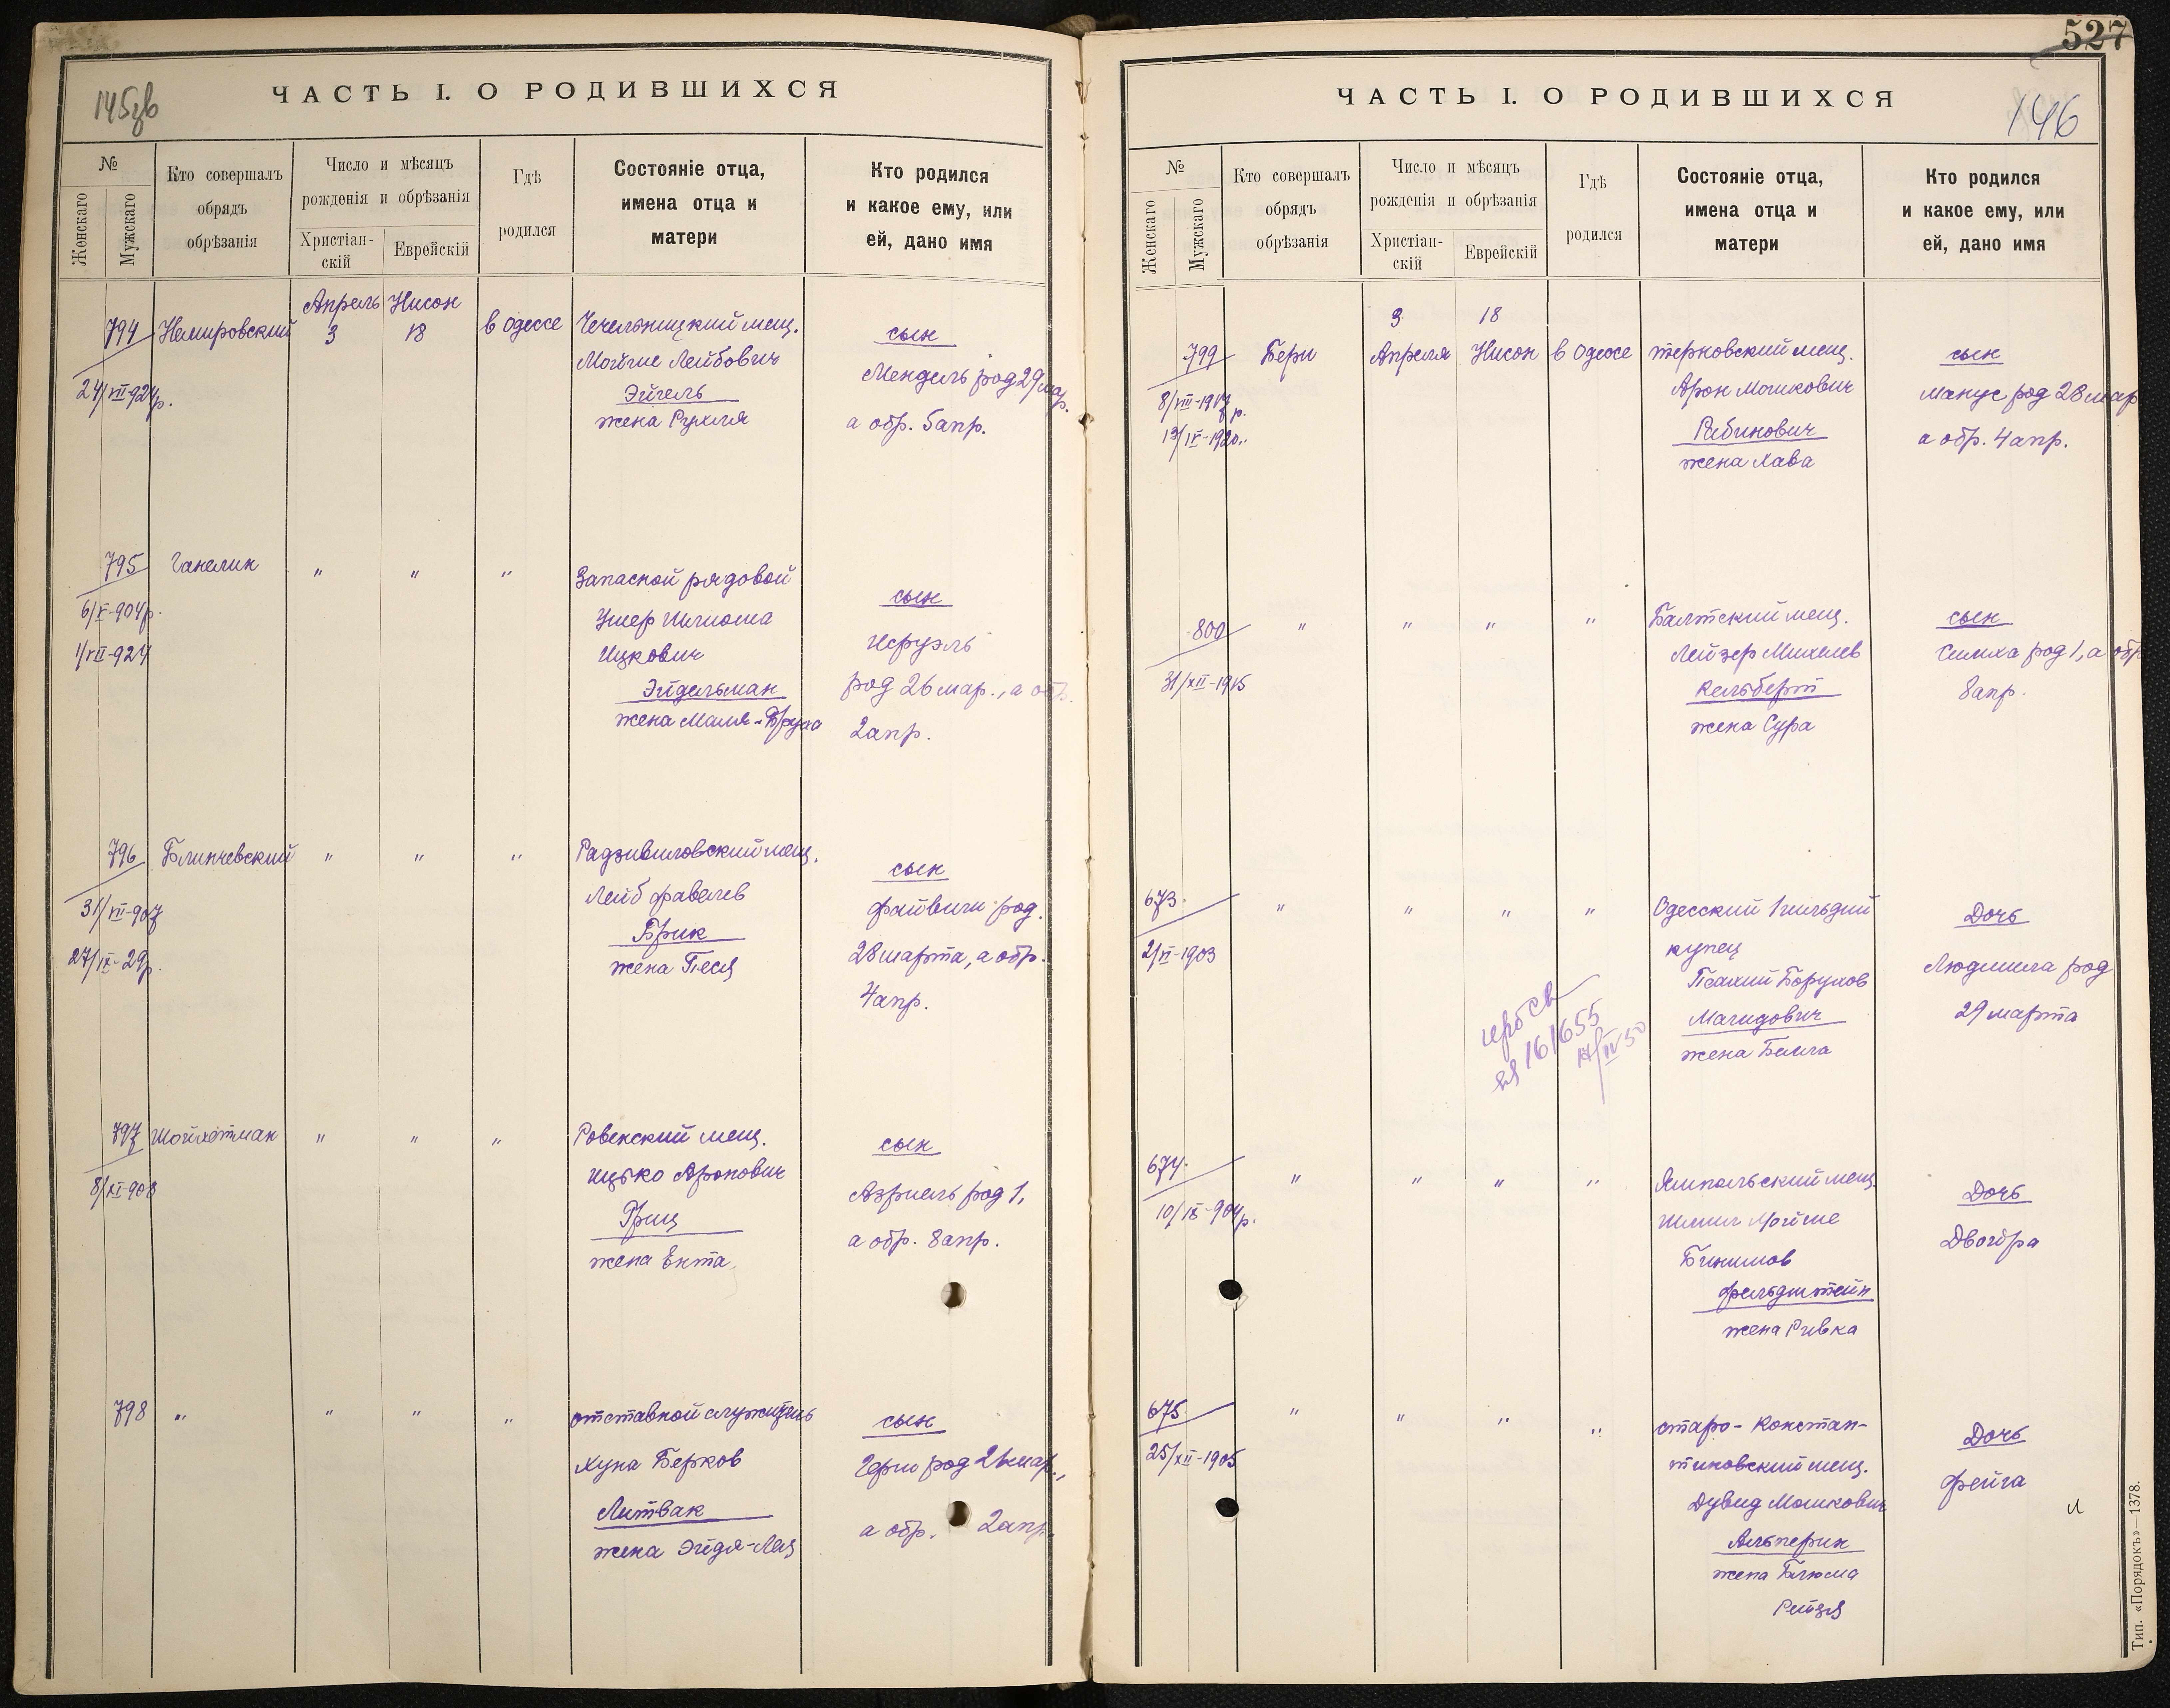 145зв
ЧАСТЬ I. О РОДИВШИХСЯ
№
Женскаго
Мужскаго
Кто совершалъ
обрядъ
обрѣзанія
Число и мѣсяцъ
рожденія и обрѣзанія
Христіан-
скій
Еврейскій
Гдѣ
родился
Состояніе отца,
имена отца и
матери
Кто родился
и какое ему, или
ей, дано имя
Апрель Нисон
794 Немировский 3 18 в Одессе Чечельницкий мещ. сын
24/VII-924р. Мойше Лейбович Мендель род 29 мар.
Эйгель
жена Рухля а обр. 5 апр.
795 Ганелик " " " Запасной рядовой сын
6/X-904р. Ушер Шлиома
1/VII-924 Ицкович Исруэль
Эйдельман род 26 мар., а обр.
жена Маля-Бруха 2 апр.
796 Блинчевский " " " Радзивиловский мещ. сын
31/VII-907 Лейб Фавелев Файвиш род.
27/IX-29р. Брик 28 марта, а обр.
жена Песя 4 апр.
797 Шойхетман " " " Ровенский мещ. сын
8/XI-908 Ицько Аронович Азриель род 1,
Гриц а обр. 8 апр.
жена Ента
798 " " " " отставной служитель сын
Хуна Берков Герш род 26 мар.,
Литвак а обр. 2 апр.
жена Эйдя-Лея
527
ЧАСТЬ I. О РОДИВШИХСЯ
146
№
Женскаго
Мужскаго
Кто совершалъ
обрядъ
обрѣзанія
Число и мѣсяцъ
рожденія и обрѣзанія
Христіан-
скій
Еврейскій
Гдѣ
родился
Состояніе отца,
имена отца и
матери
Кто родился
и какое ему, или
ей, дано имя
3 18
799 Бери Апреля Нисон в Одессе терновский мещ. сын
8/VIII-1917 р. Арон Мошкович Манус род 28 мар
13/IV-1920 Рабинович а обр. 4 апр.
жена Хава
800 " " " " Балтский мещ. сын
Лейзер Михелев Симха род 1, а обр
31/XII-1915 Кельберт 8 апр.
жена Сура
673 " " " " Одесский 1 гильдии Дочь
2/VI-1903 купец Людмила род
Псахий Борухов 29 марта
Магидович
жена Бейла
161655
17/IV 50
674 " " " " Ямпольский мещ. Дочь
10/IX-904р. Шмил Мойше Двойра
Бинимов
Фельдштейн
жена Ривка
675 " " " " старо-Констан- Дочь
25/XII-1905 тиновский мещ. Фейга
Дувид Мошкович
Альперин
жена Блюма
Рейзя
Тип. «Порядокъ»—1378.